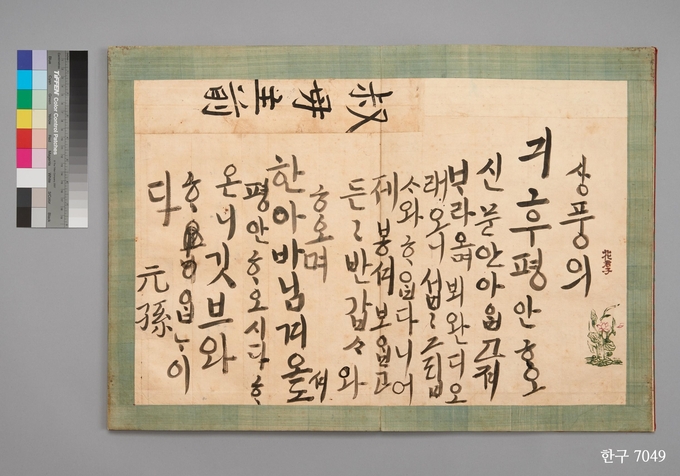 叔母主前
상풍의
긔후평안ᄒᆞ오
신문안아ᄋᆞᆸ고져
ᄇᆞ라오며뵈완디오
래오니섭〻그립
ᄉᆞ와ᄒᆞᄋᆞᆸ다니어
제봉셔보ᄋᆞᆸ고
든〻반갑ᄉᆞ와
ᄒᆞ오며
한아바님겨오셔도
평안ᄒᆞ오시다ᄒᆞ
온니깃브와
ᄒᆞᄋᆞᆸᄂᆞ이
다
元孫
TIFFEN Color Control Patches
한구 7049